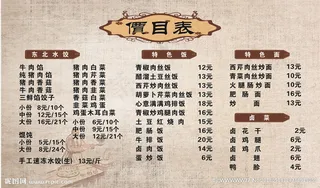 價目表
东北水饺
牛肉馅 猪肉白菜
纯猪肉馅 猪肉芹菜
牛肉香菇 猪肉香菇
牛肉香菜 猪肉白菜
三鲜馅饺子 韭菜鸡蛋
小份 8元/10个 鸡蛋木耳白菜
中份 12元/16个 小份 6元/10个
大份 15元/21个 中份 9元/16个
大份 12元/21个
馄饨
小份 5元/15个
大份 8元/24个
手工速冻水饺(生) 13元/斤
特色饭
青椒肉丝饭 12元
醋溜土豆丝饭 10元
西芹肉丝饭 13元
胡萝卜芹菜肉丝饭 13元
心意满满鸡排饭 18元
青椒炒鸡腿肉饭 16元
土豆红烧肉 15元
肥肠饭 16元
牛排饭 20元
卤肉饭 15元
蛋炒饭 6元
特色面
西芹肉丝炒面 13元
青椒肉丝炒面 13元
火腿肠炒面 10元
肥肠面 16元
炒面 10元
卤菜
卤花干 2元
卤鸡爪 3元
卤鸡腿 5元
卤翅 6元
鸭胗 4元
昵图网